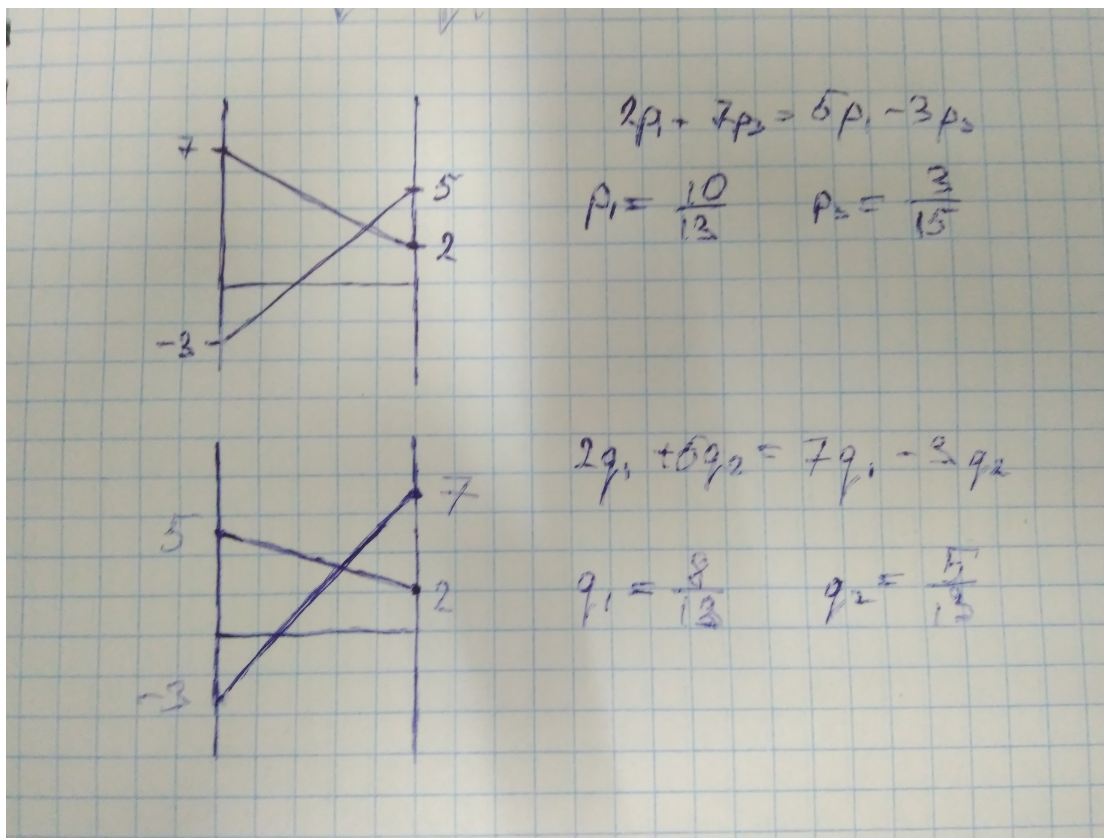 7
5
2
-3
2p₁ + 7p₂ = 5p₁ - 3p₂
p₁ = 10/13 p₂ = 3/13
5
7
2
-3
2q₁ + 5q₂ = 7q₁ - 3q₂
q₁ = 8/13 q₂ = 5/13